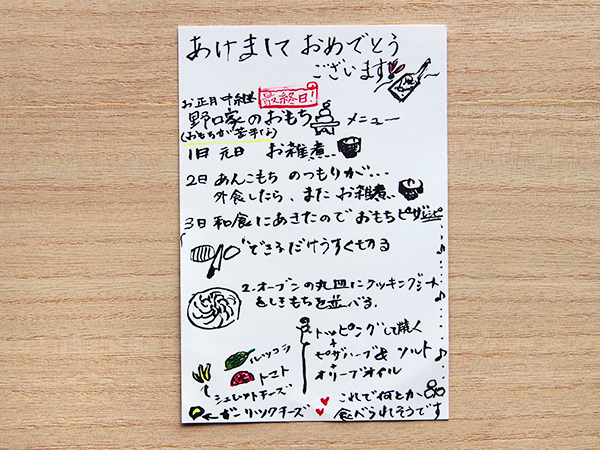 あけまして おめでとう
ございます!
お正月中継 最終日!
野口家のおもち メニュー
(おもちが苦手な)
1日 元日 お雑煮
2日 あんこもち のつもりが...
外食したら、また お雑煮
3日 和食にあきたので おもちピザレシピ
1.できるだけうすく切る
2.オーブンの丸皿にクッキングシート
をしきもちを並べる。
トッピングして焼く
+
ピザハーブ& ソルト
+
オリーブオイル
ルッコラ
トマト
シュレットチーズ
ガーリックチーズ
これで何とか
食べられそうです